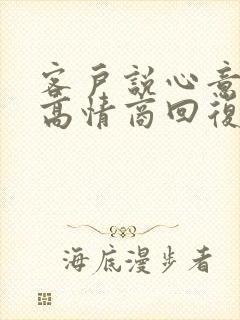 客戶説心意
高情商回復
海底漫步者